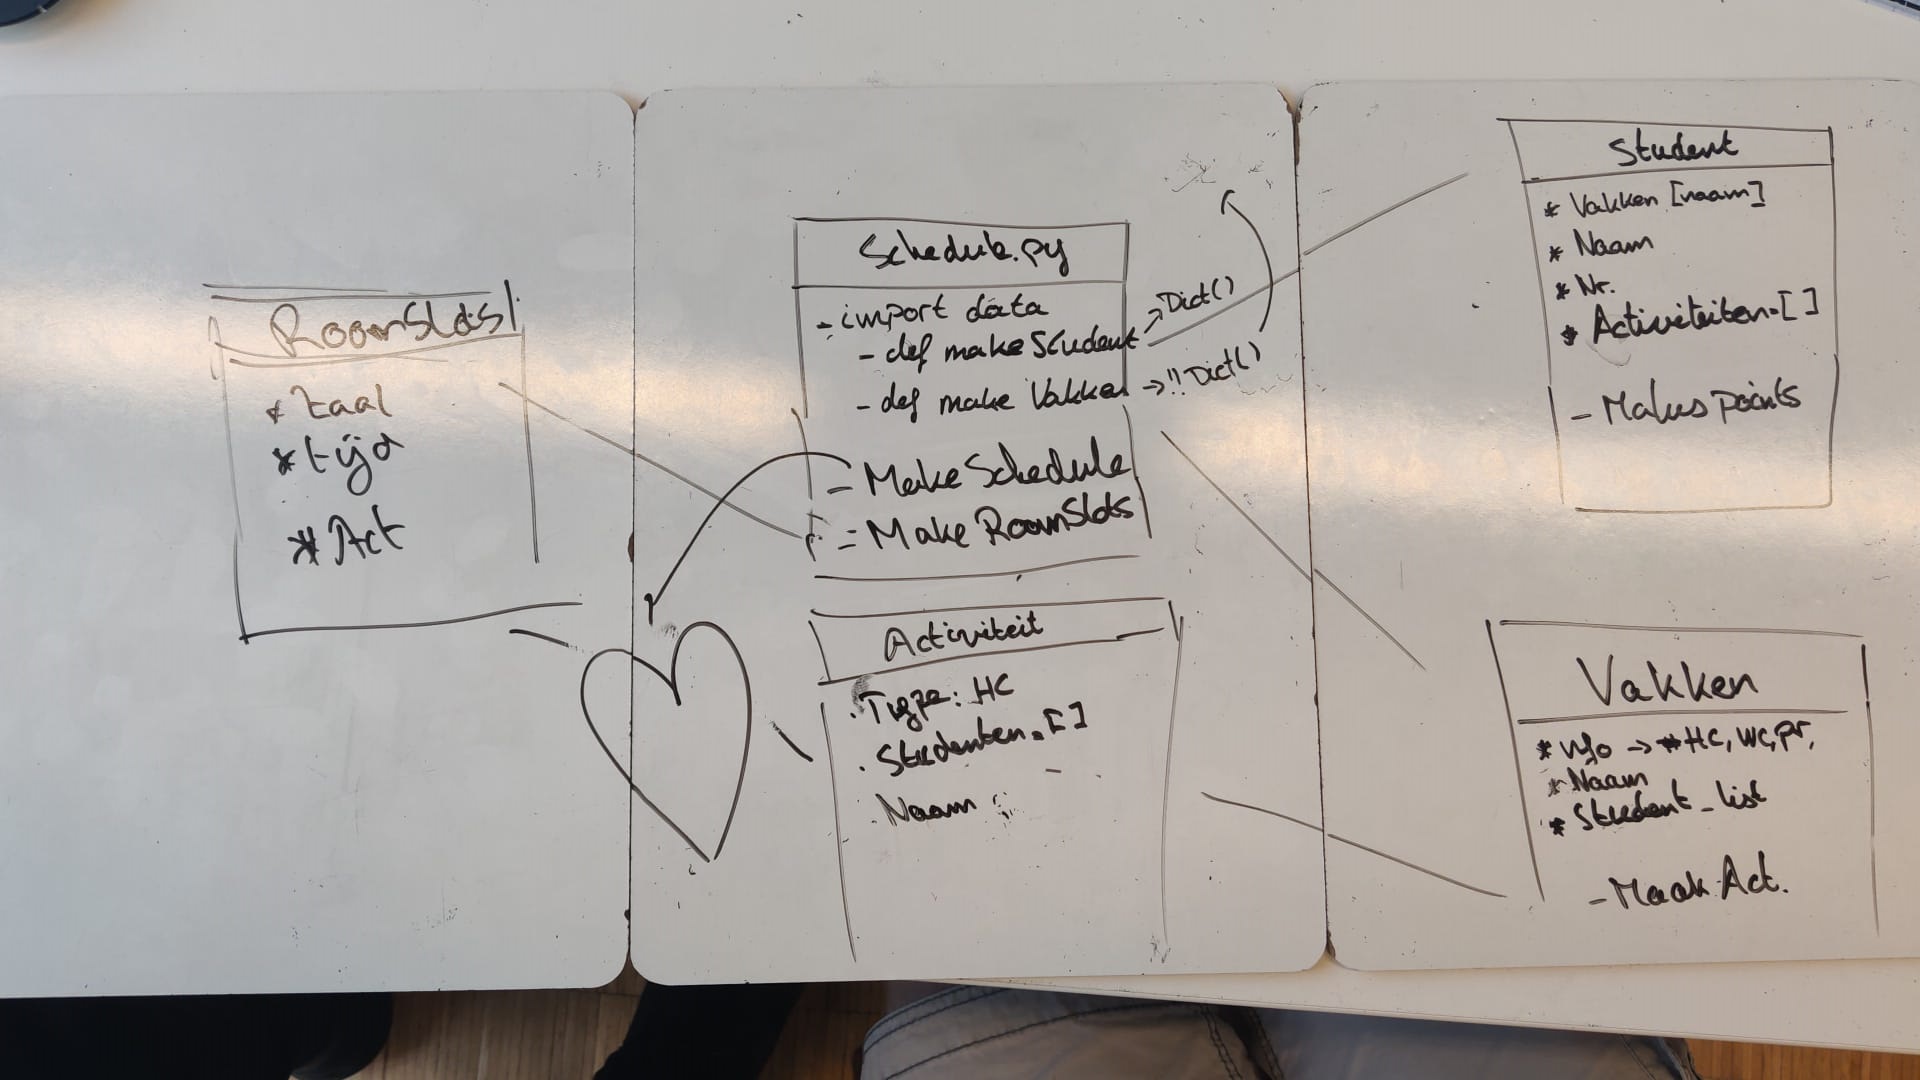 RoomSlots
* Zaal
* tijd
* Act
Schedule.py
- import data
- def makeStudent → Dict()
- def make Vakken → !! Dict()
- Make Schedule
- Make RoomSlots
Activiteit
. Type: HC
. Studenten = []
. Naam :
Student
* Vakken [naam]
* Naam
* Nr.
* Activiteiten = []
- Malus points
Vakken
* info → # HC, WC, pr,
* Naam
* Student_list
- Maak Act.